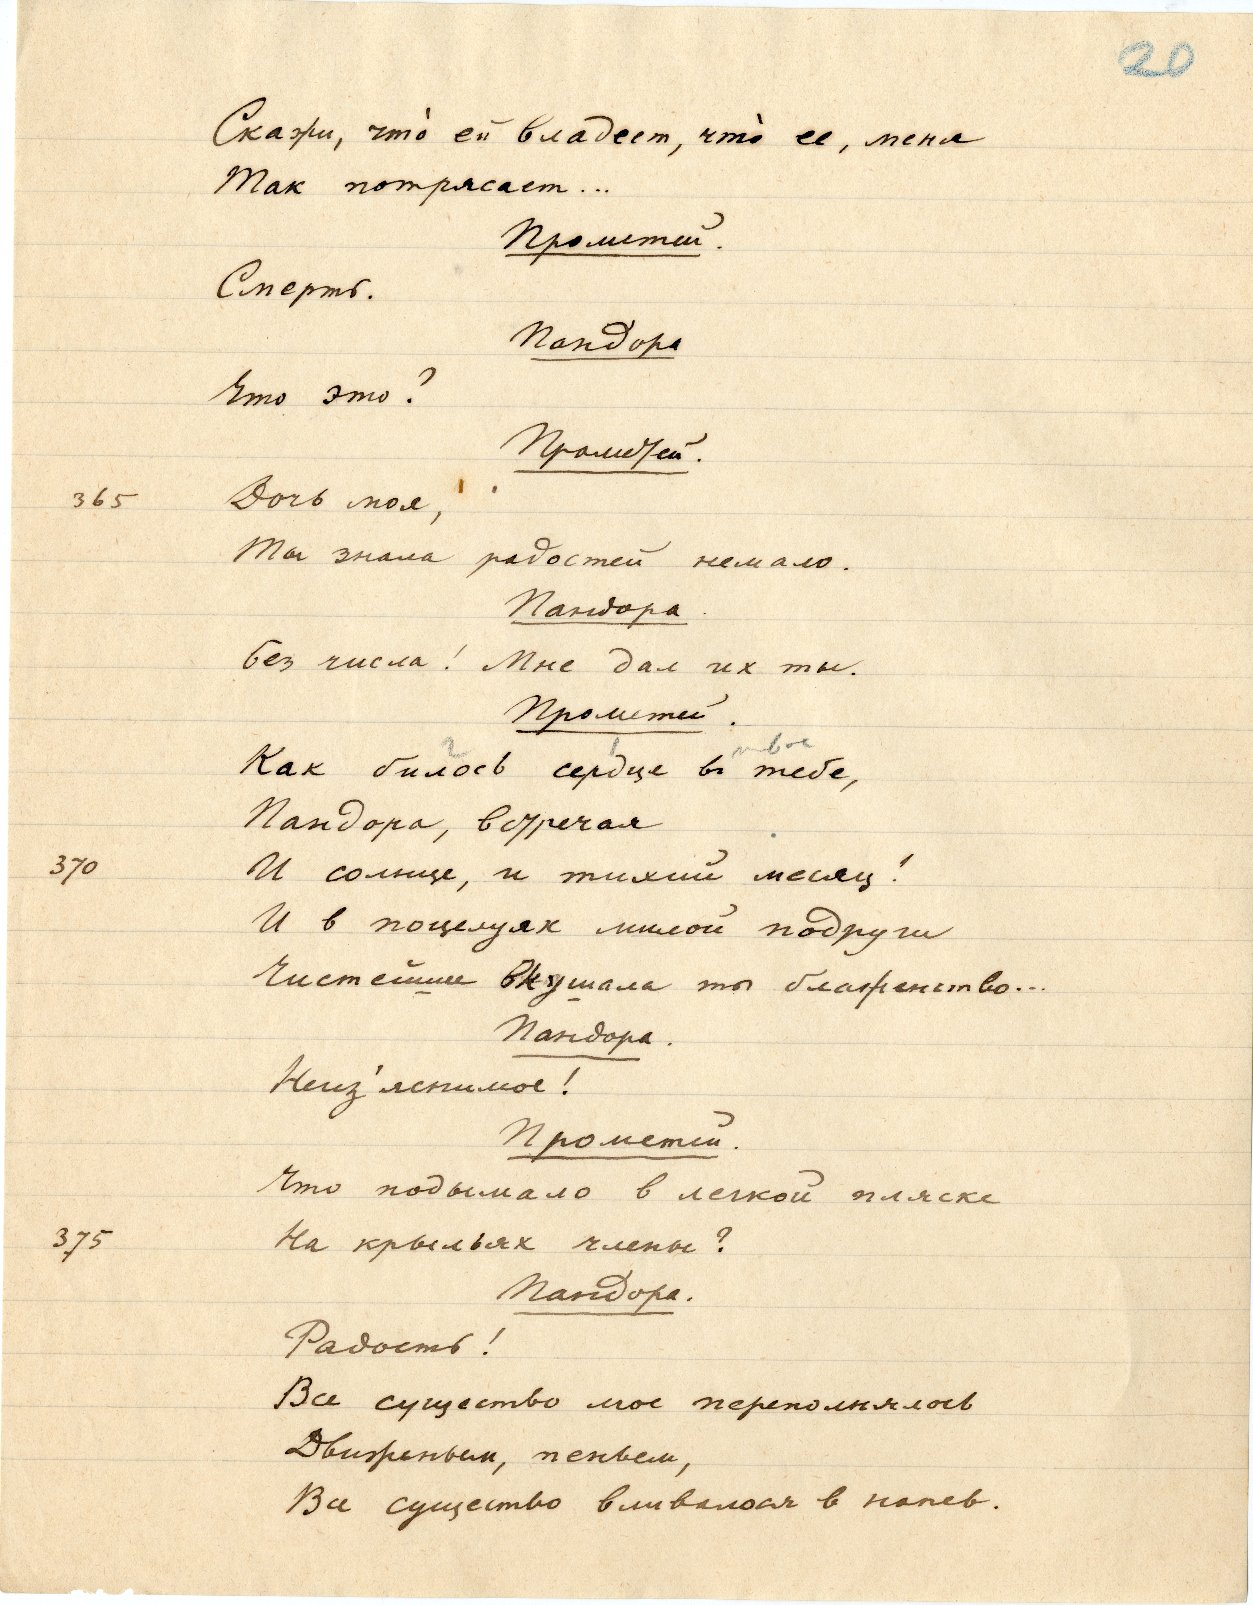 20
Скажи, что̀ ей владеет, что̀ ее, меня
Так потрясает...
Прометей.
Смерть.
Пандора
Что это?
Прометей.
365 Дочь моя,
Ты знала радостей немало.
Пандора.
Без числа! Мне дал их ты.
Прометей.
2 1 твое
Как билось сердце в тебе,
Пандора, встречая
370 И солнце, и тихий месяц!
И в поцелуях милой подруги
Чистейшее вкушала ты блаженство...
Пандора.
Неиз'яснимое!
Прометей.
Что подымало в легкой пляске
375 На крыльях члены?
Пандора.
Радость!
Все существо мое переполнялось
Движеньем, пеньем,
Все существо вливалося в напев.